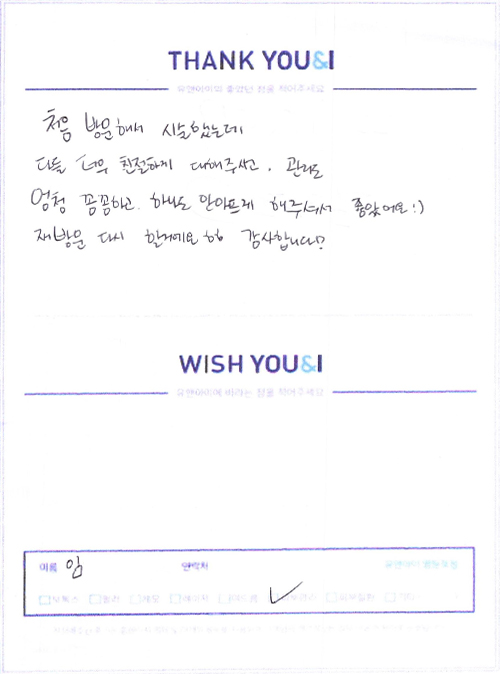 THANK YOU&I
유앤아이의 좋았던 점을 적어주세요
처음 방문해서 시술했는데
다들 너무 친절하게 대해주시고, 관리도
엄청 꼼꼼하고 하나도 안아프게 해주셔서 좋았어요 :)
재방문 다시 할거에요 ㅎㅎ 감사합니다
WISH YOU&I
유앤아이에 바라는 점을 적어주세요
이름 임 연락처 유앤아이
보톡스 필러 제모 레이저 기타